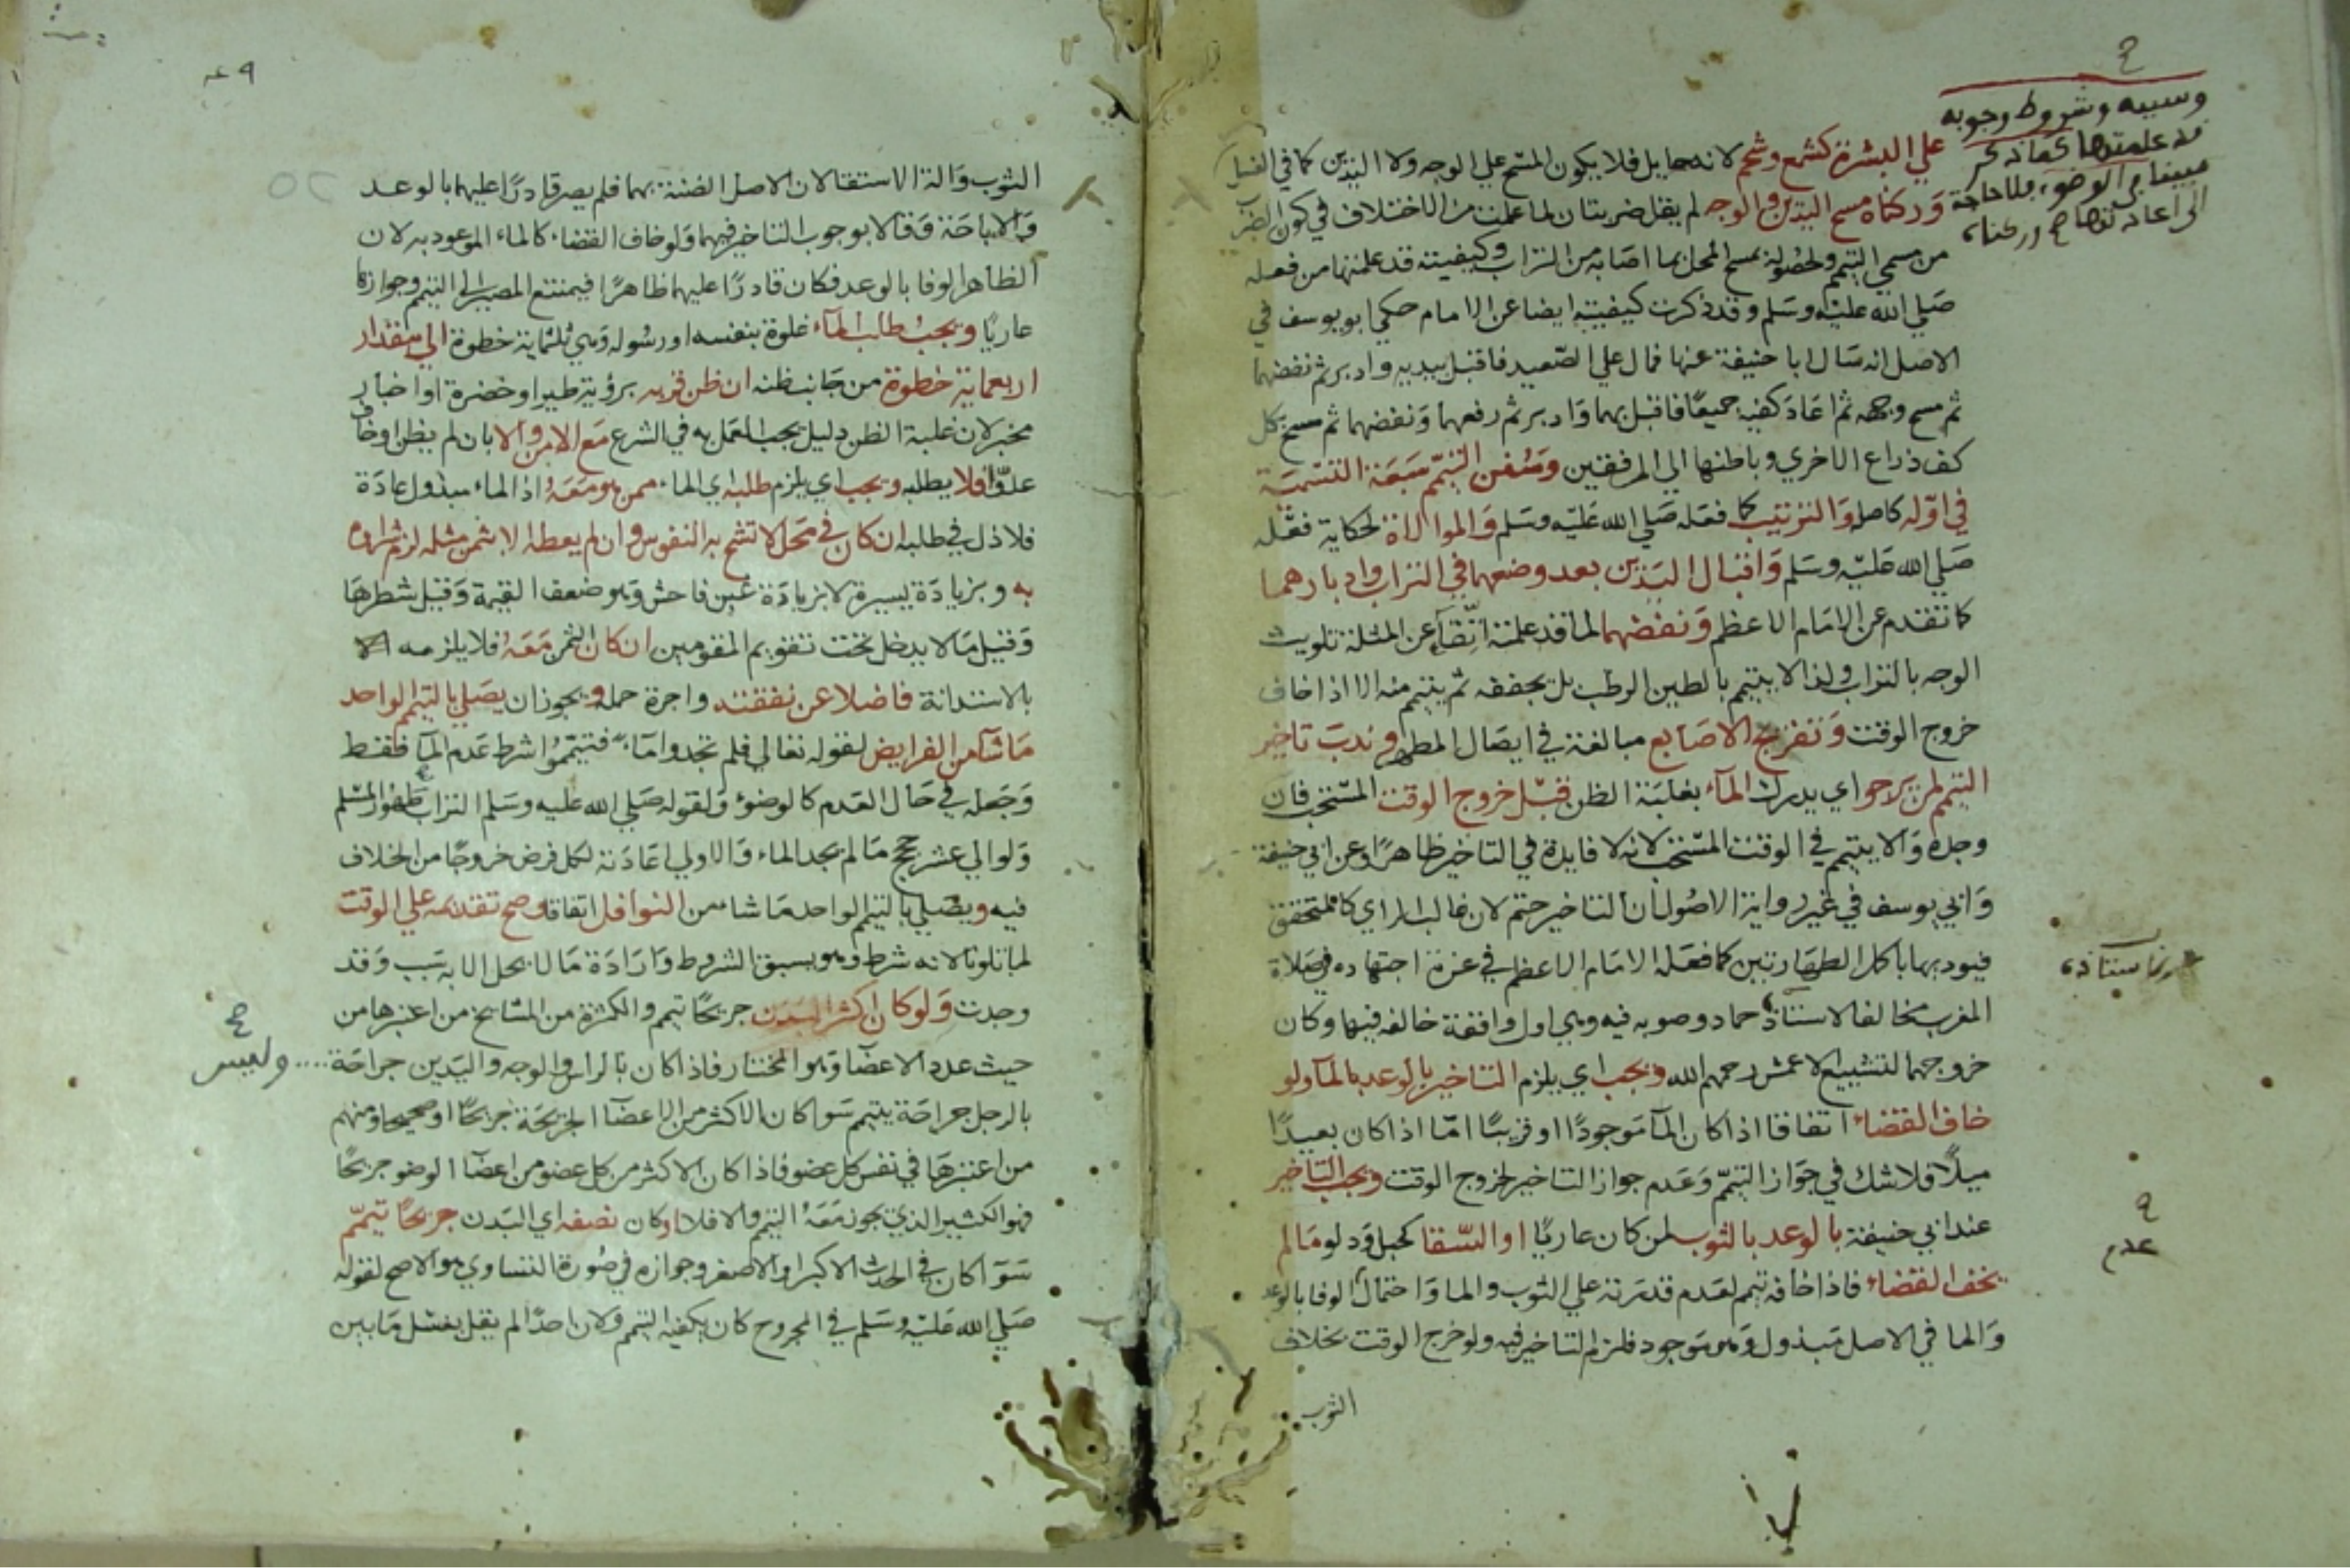 ع
وسببه وشروط وجوبه
قد علمتها كما ذكر
مبينا في الوضوء فلا حاجة
الى اعادتها ص وركناه
على البشرة كشمع وشحم لانه حايل فلا يكون المسح علي الوجه ولا اليدين كما في الغسل
وركناه مسح اليدين والوجه لم يقل ضربتان لما علمت من الاختلاف في كون الضرب
من مسمي التيمم ولحصوله بمسح المحل بما اصابه من التراب وكيفيته قد علمتها من فعله
صلي الله عليه وسلم وقد ذكرت كيفيته ايضا عن الامام حكي ابو يوسف في
الاصل انه سال ابا حنيفة عنها فمال علي الصعيد فاقبل بيديه وادبر ثم نفضهما
ثم مسح وجهه ثم اعاد كفيه جميعا فاقبل بهما وادبر ثم رفعهما ونفضهما ثم مسح بكل
كف ذراع الاخري وباطنها الي المرفقين وسنن التيمم سبعة التسمية
في اوله كاصله والترتيب كما فعله صلي الله عليه وسلم والموالاة لحكاية فعله
صلي الله عليه وسلم واقبال اليدين بعد وضعهما في التراب وادبارهما
كما تقدم عن الامام الاعظم ونفضهما لما قد علمته اتقاء عن المثلة تلويث
الوجه بالتراب ولذا لا يتيمم بالطين الرطب بل يجففه ثم يتيمم منه الا اذا خاف
خروج الوقت وتفريج الاصابع مبالغة في ايصال المطهر وندب تاخير
التيمم لمن يرجو اي يدرك الماء بغلبة الظن قبل خروج الوقت المستحب فان
وجده والا يتيمم في الوقت المستحب لانه لا فايدة في التاخير ظاهرا وعن ابي حنيفة
وابي يوسف في غير رواية الاصول ان التاخير حتم لان غالب الراي كالمتحقق
فيوديها باكمل الطهارتين كما فعله الامام الاعظم في عزة اجتهاده في صلاة
المغرب مخالفا لاستاذ حماد وصوبه فيه وهي اول واقعة خالفه فيها وكان
خروجهما لتشييع الاعمش رحمهم الله ويجب اي يلزم التاخير بالوعد بالماء ولو
خاف القضاء اتفاقا اذا كان الماء موجودا او قريبا اما اذا كان بعيدا
ميلا فلا شك في جواز التيمم وعدم جواز التاخير لخروج الوقت ويجب التاخير
عند ابي حنيفة بالوعد بالثوب لمن كان عاريا او السقا كحبل ودلو ما لم
يخف القضاء فاذا خافه تيمم لعدم قدرته علي الثوب والما واحتمال الوفا بالوعد
والما في الاصل مبذول وهو موجود فلزم التاخير فيه ولو خرج الوقت بخلاف
الثوب
عدم
الثوب والة الاستقا لان الاصل الضنة بهما فلم يصر قادرا عليهما بالوعد
والاباحة وقالا بوجوب التاخير فيهما ولو خاف القضاء كالماء الموعود به لان
الظاهر الوفا بالوعد فكان قادرا عليهما ظاهرا فيمتنع المصير الي التيمم وجوازها
عاريا ويجب طلب الماء غلوة بنفسه او رسوله وهي ثلثماية خطوة الي مقدار
اربعماية خطوة من جانب ظنه ان ظن قربه برؤية طير او خضرة او اخبار
مخبر لان غلبة الظن دليل يجب العمل به في الشرع مع الامن والا بان لم يظن او خاف
عدوا فلا يطلبه ويجب اي يلزم طلبه اي الماء ممن هو معه اذ الماء مبذول عادة
فلا ذل في طلبه ان كان في محل لا تشح به النفوس وان لم يعطه الا بثمن مثله لزم شراوه
به وبزيادة يسيرة لا بزيادة غبن فاحش وهو ضعف القيمة وقيل شطرها
وقيل ما لا يدخل تحت تقويم المقومين ان كان الثمن معه فلا يلزمه
بالاستدانة فاضلا عن نفقته واجرة حمله ويجوز ان يصلي بالتيمم الواحد
ما شاء من الفرايض لقوله تعالي فلم تجدوا ماء فتيمموا شرط عدم الماء فقط
وجعله في حال العدم كالوضوء ولقوله صلي الله عليه وسلم التراب طهور المسلم
ولو الي عشر حجج ما لم يجد الماء والاولي اعادته لكل فرض خروجا من الخلاف
فيه ويصلي بالتيمم الواحد ما شاء من النوافل اتفاقا وصح تقديمه علي الوقت
لما تلونا لانه شرط وهو يسبق المشروط وارادة ما لا يحل الا به سبب وقد
وجدت ولو كان اكثر البدن جريحا تيمم والكثرة من المشايخ من اعتبرها من
حيث عدد الاعضا وهو المختار فاذا كان بالراس والوجه واليدين جراحة
بالرجل جراحة يتيمم سوا كان الاكثر من الاعضا الجريحة جريحا او صحيحا ومنهم
من اعتبرها في نفس كل عضو فاذا كان الاكثر من كل عضو من اعضا الوضو جريحا
فهو الكثير الذي يجوز معه التيمم والا فلا او كان نصفه اي البدن جريحا تيمم
سوا كان في الحدث الاكبر او الاصغر وجوازه في صورة التساوي هو الاصح لقوله
صلي الله عليه وسلم في المجروح كان يكفيه التيمم ولان احدا لم يقل بغسل ما بين
وليس